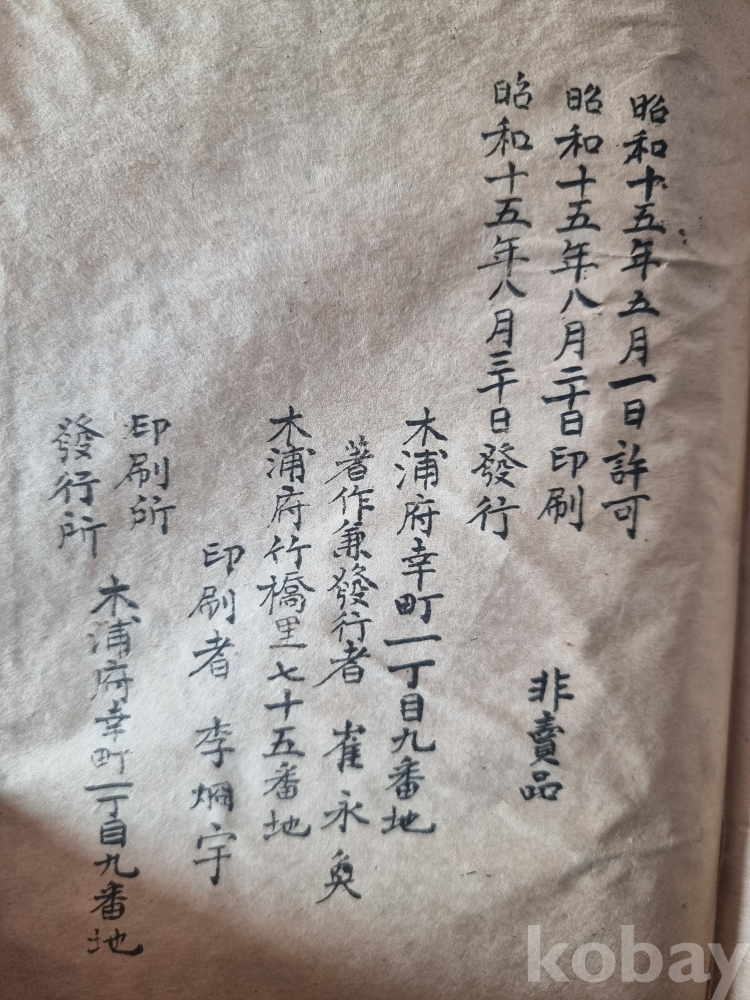 昭和十五年五月一日許可
昭和十五年八月二十日印刷
昭和十五年八月三十日發行
非賣品
木浦府幸町一丁目九番地
著作兼發行者 崔永奐
木浦府竹橋里七十五番地
印刷者 李炯宇
印刷所
發行所
木浦府幸町一丁目九番地
kobay